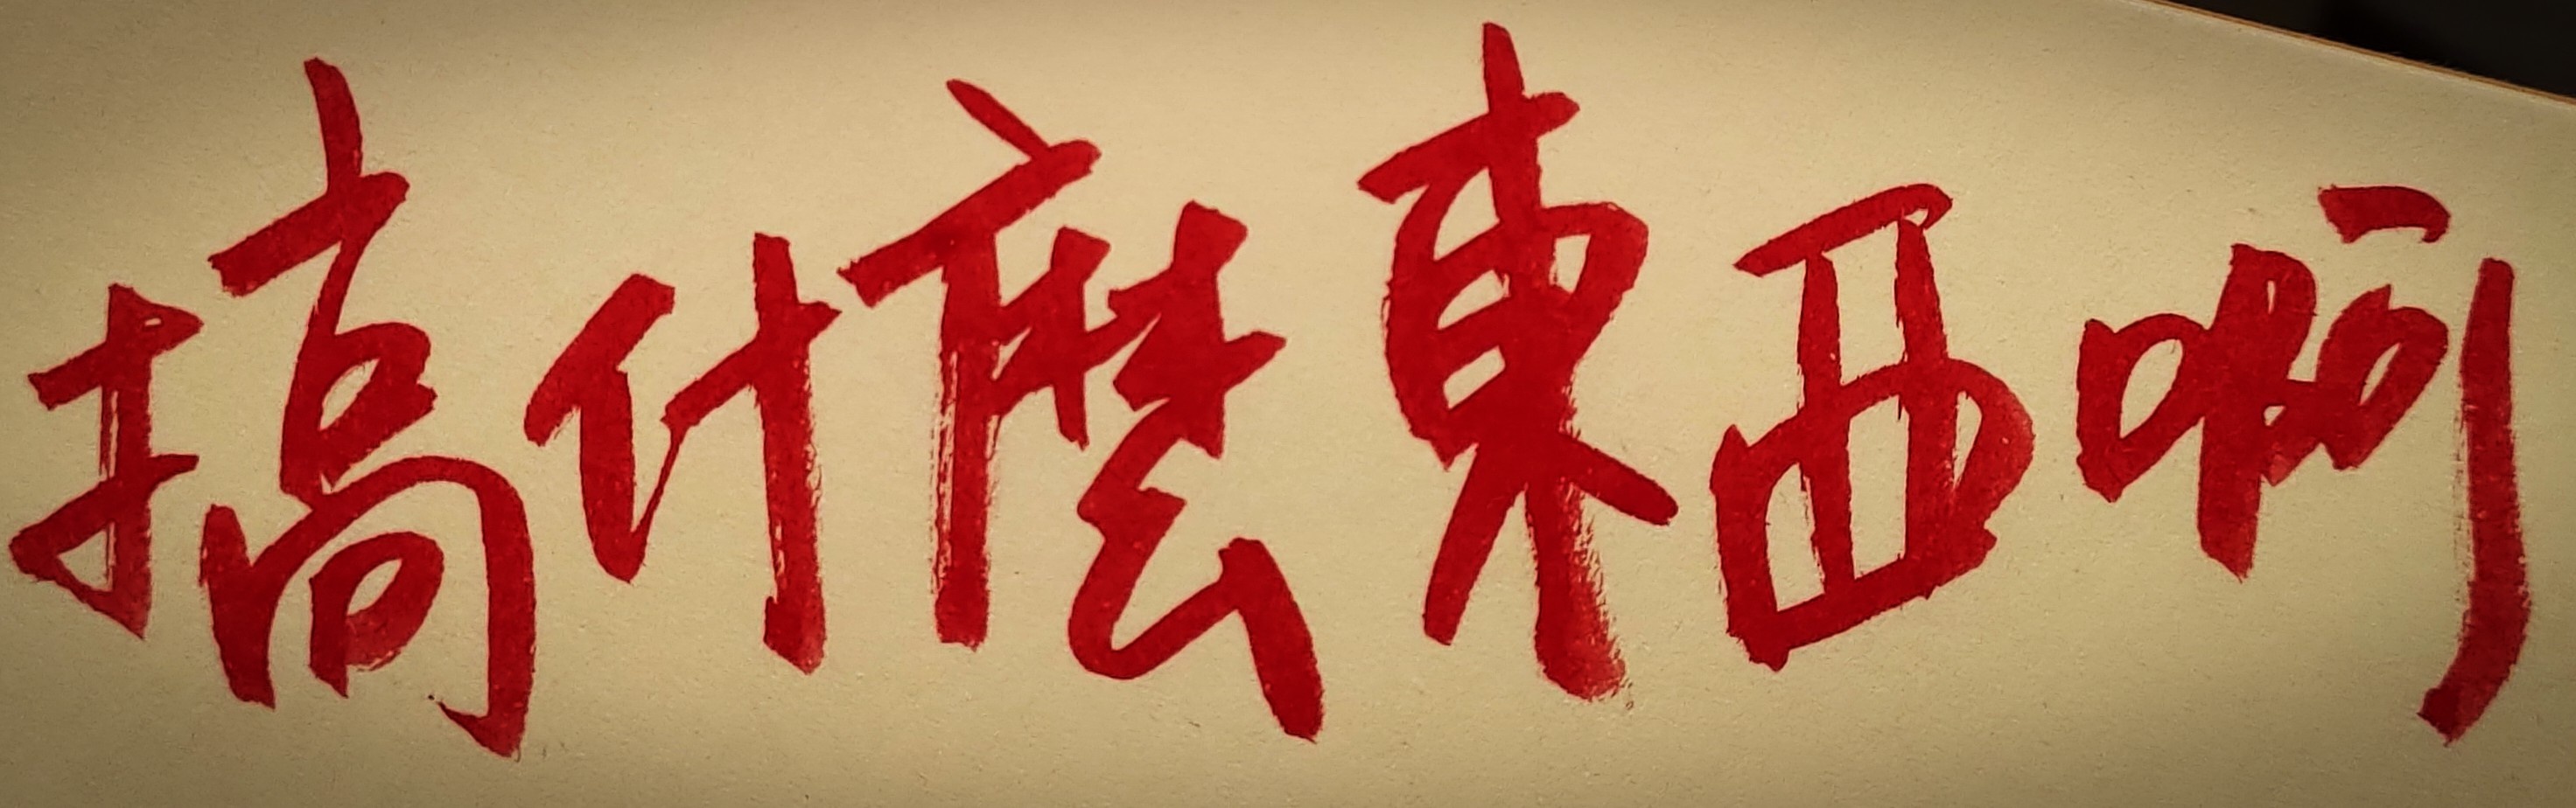 搞什麼東西啊